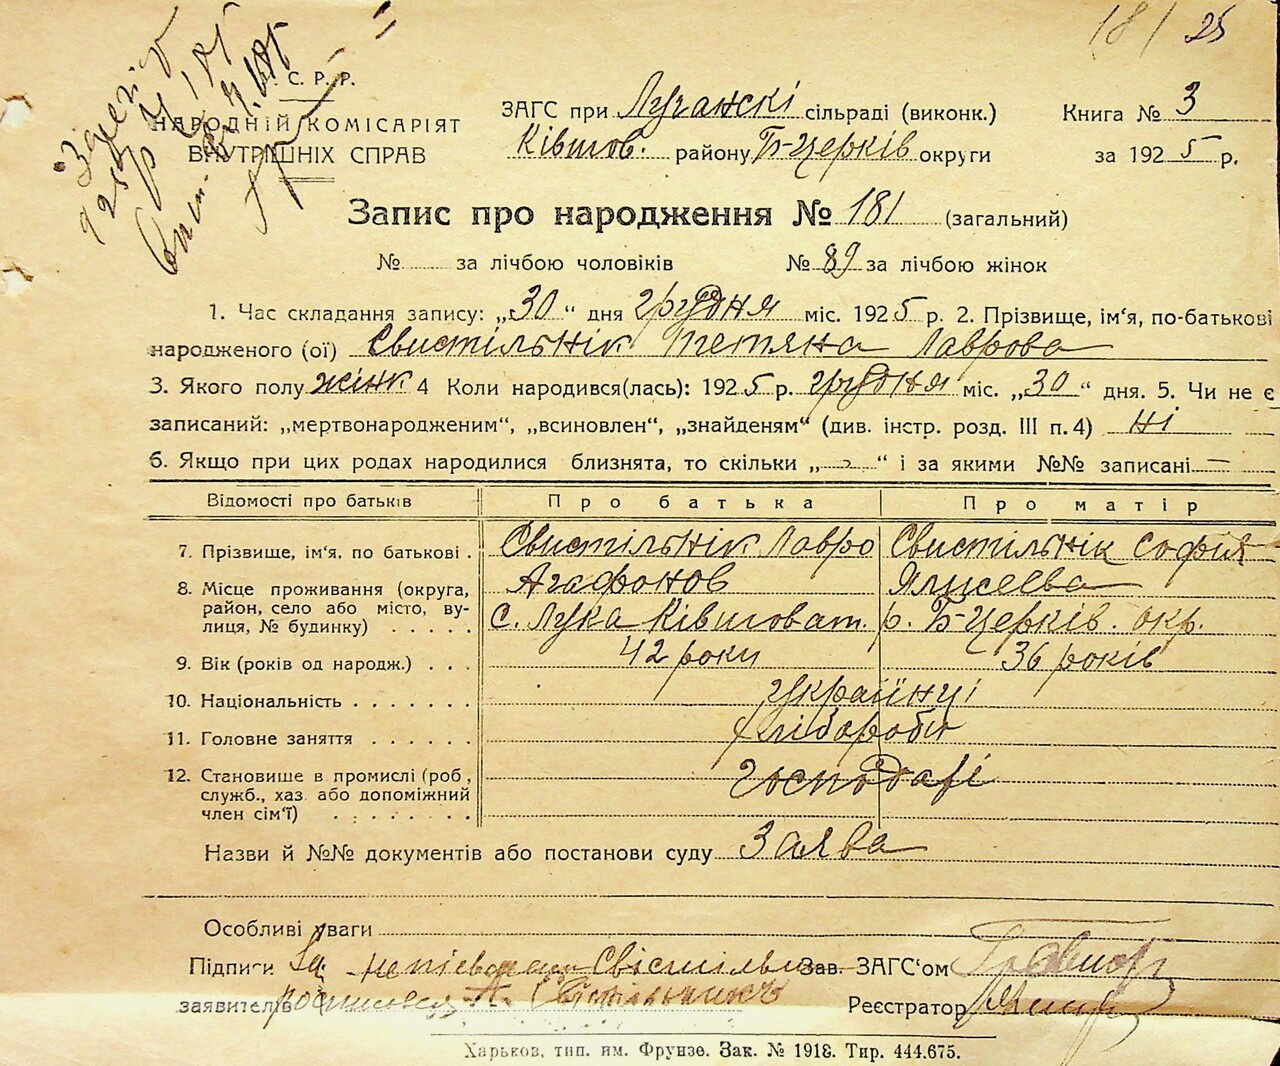 181 25
С. Р. Р.
НАРОДНІЙ КОМІСАРІЯТ
ВНУТРІШНІХ СПРАВ
ЗАГС при Лучанскі сільраді (виконк.)
Ківшов. району Б-Церків округи
Книга № 3
за 1925 р.
Запис про народження № 181 (загальний)
№ за лічбою чоловіків № 89 за лічбою жінок
1. Час складання запису: „30“ дня грудня міс. 1925 р. 2. Прізвище, ім‘я, по-батькові
народженого (ої) Свистільнік Тетяна Лаврова
3. Якого полу жінк 4 Коли народився(лась): 1925 р. грудня міс. „30“ дня. 5. Чи не є
записаний: „мертвонародженим“, „всиновлен“, „знайденям“ (див. інстр. розд. III п. 4) Ні
6. Якщо при цих родах народилися близнята, то скільки „-“ і за якими №№ записані —
Відомості про батьків Про батька Про матір
7. Прізвище, ім‘я, по батькові . Свистільнік Лавро Свистільнік София
Агафонов Ялисеева
8. Місце проживання (округа,
район, село або місто, ву-
лиця, № будинку) . . . . . с. Лука Ківшоват. р. Б-Церків. окр.
9. Вік (років од народж.) . . . 42 роки 36 років
10. Національність . . . . . . . українці
11. Головне заняття . . . . . . хлібороби
12. Становище в промислі (роб,
служб., хаз. або допоміжний
член сім‘ї) . . . . . . . . Господарі
Назви й №№ документів або постанови суду Заява
Особливі уваги
Підписи За Свістільн Зав. ЗАГС‘ом
заявителів А. Світільник Реєстратор
Харьков, тип. им. Фрунзе. Зак. № 1918. Тир. 444.675.